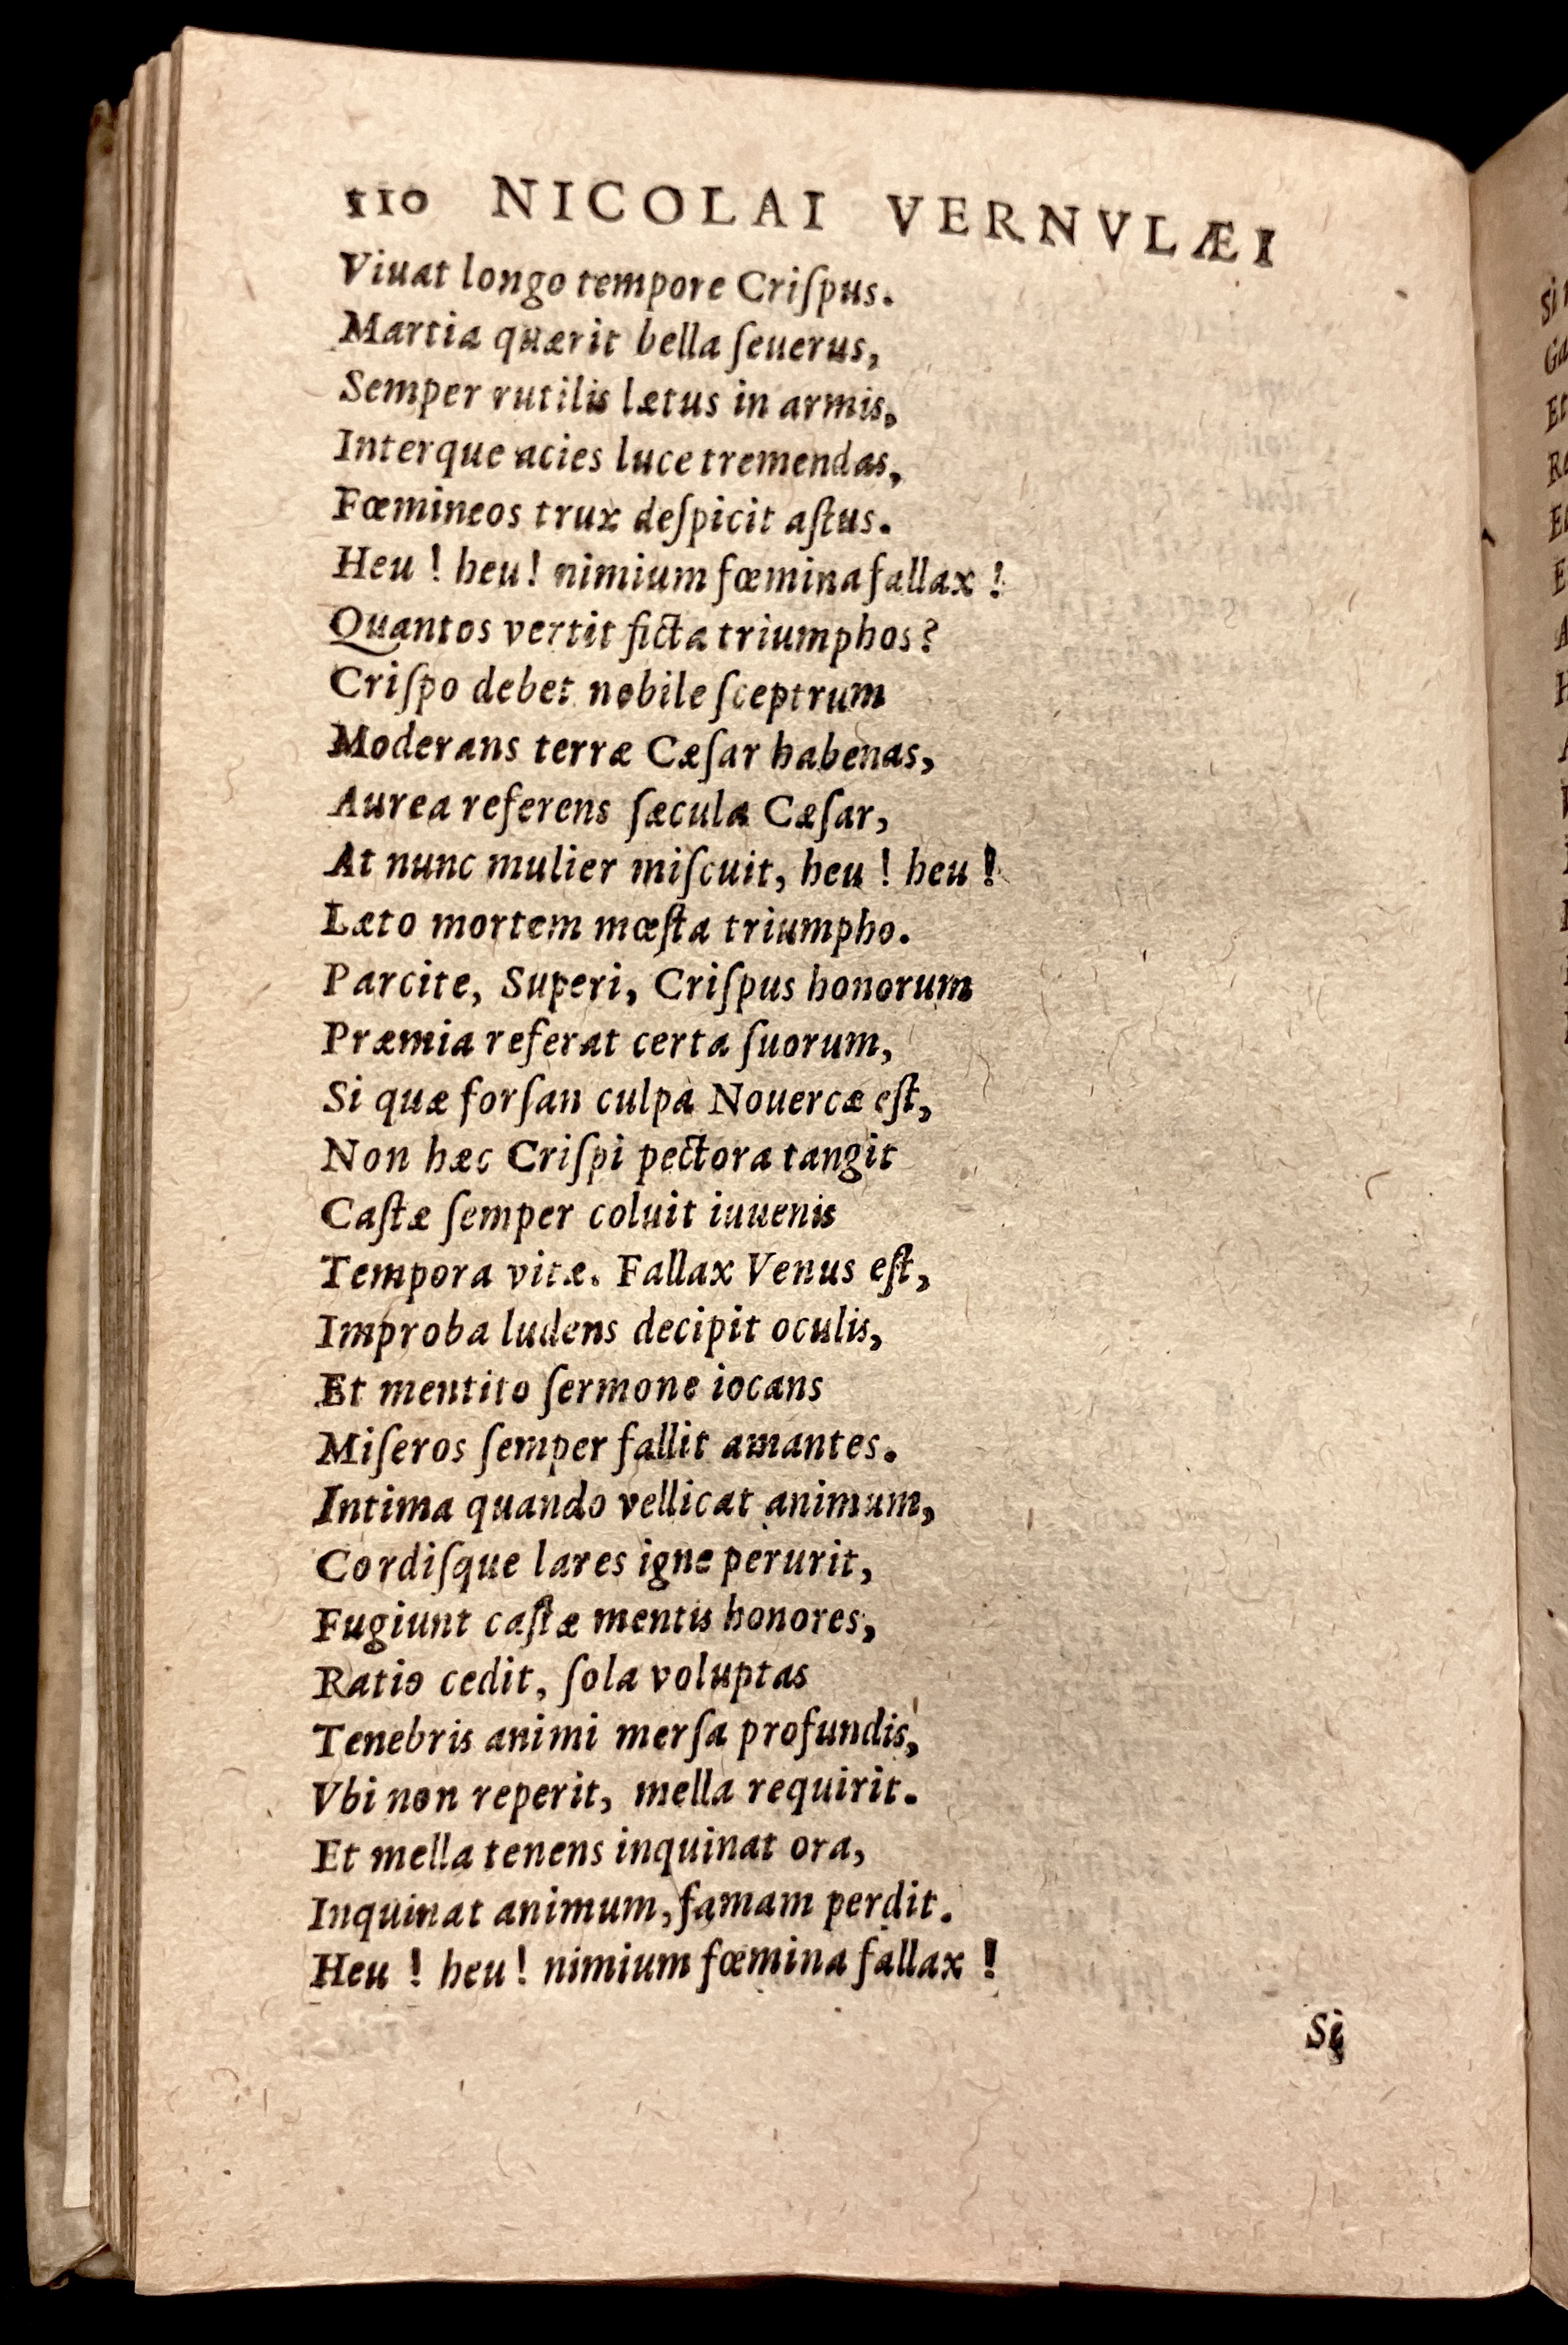 110 NICOLAI VERNVLÆI
Viuat longo tempore Criſpus.
Martia quærit bella ſeuerus,
Semper rutilis lætus in armis,
Interque acies luce tremendas,
Fœmineos trux deſpicit aſtus.
Heu ! heu ! nimium fœmina fallax !
Quantos vertit ficta triumphos?
Criſpo debet nobile ſceptrum
Moderans terræ Cæſar habenas,
Aurea referens ſæcula Cæſar,
At nunc mulier miſcuit, heu ! heu !
Læto mortem mœſta triumpho.
Parcite, Superi, Criſpus honorum
Præmia referat certa ſuorum,
Si quæ forſan culpa Nouercæ eſt,
Non hæc Criſpi pectora tangit
Caſtæ ſemper coluit iuuenis
Tempora vitæ. Fallax Venus eſt,
Improba ludens decipit oculis,
Et mentito ſermone iocans
Miſeros ſemper fallit amantes.
Intima quando vellicat animum,
Cordiſque lares igne perurit,
Fugiunt caſtæ mentis honores,
Ratio cedit, ſola voluptas
Tenebris animi merſa profundis,
Vbi non reperit, mella requirit.
Et mella tenens inquinat ora,
Inquinat animum, famam perdit.
Heu ! heu ! nimium fœmina fallax !
Si